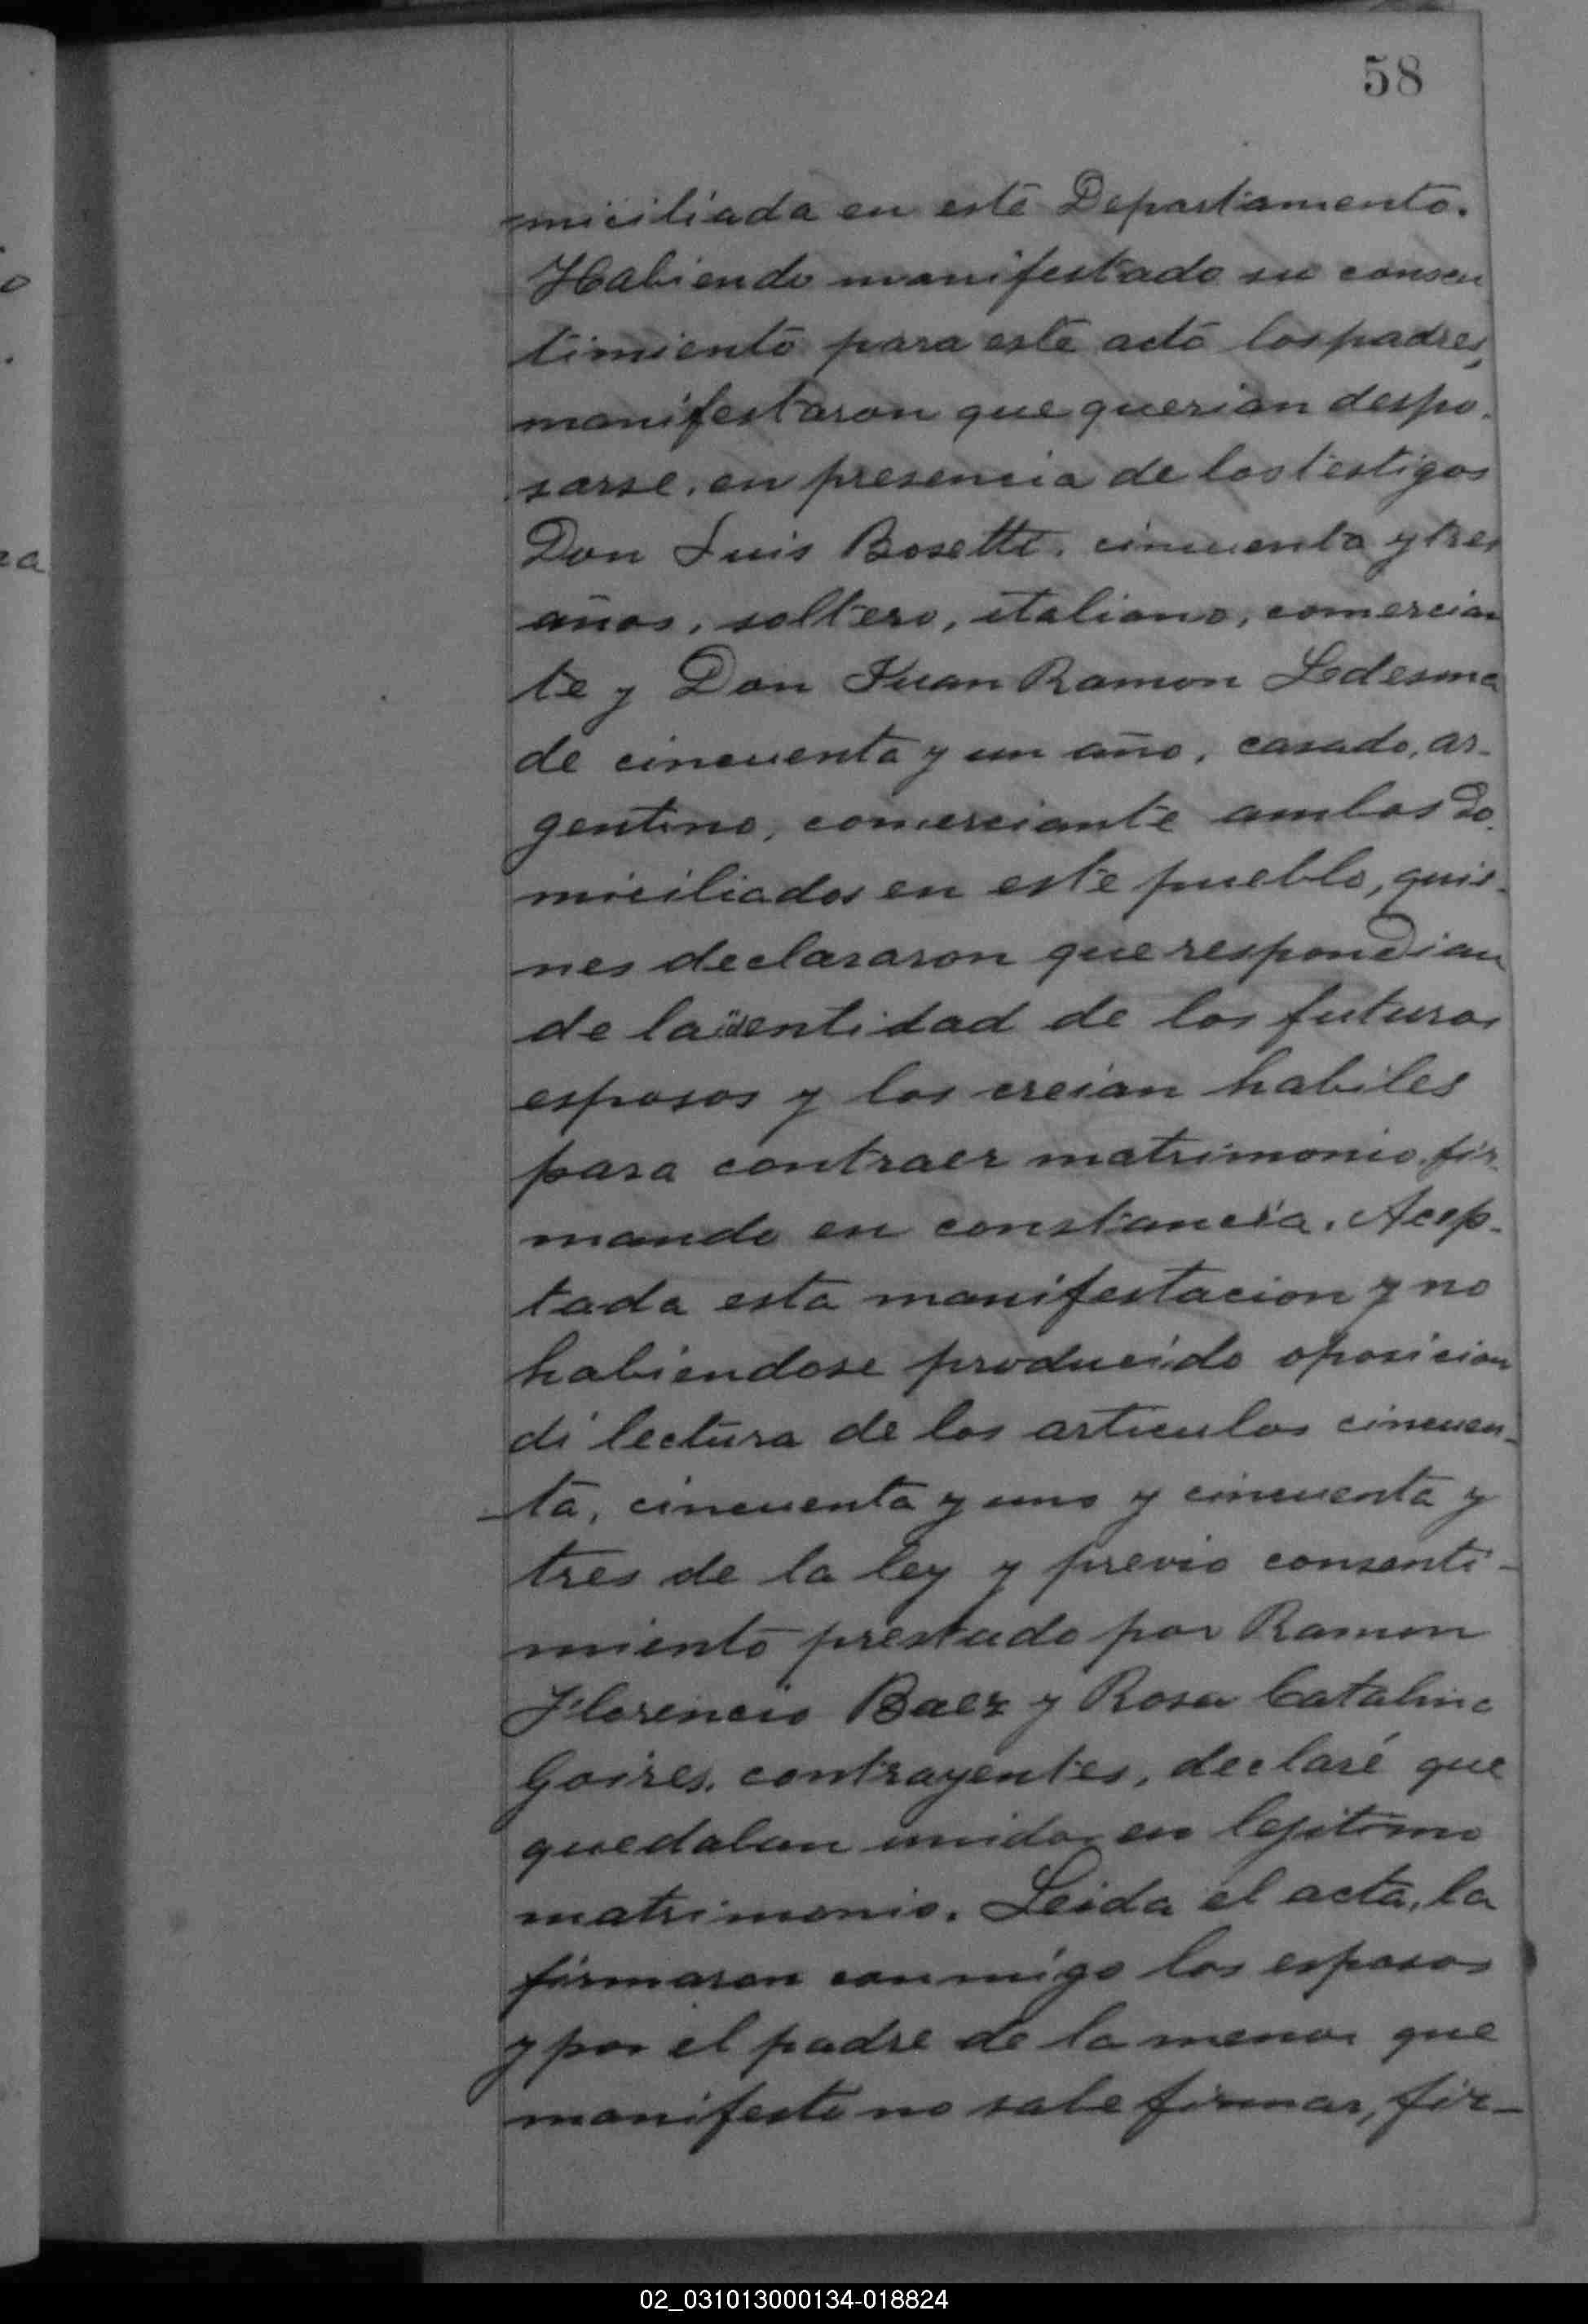 58
miciliada en este Departamento.
Habiendo manifestado su consen
timiento para este acto los padres,
manifestaron que querian despo-
sarse, en presencia de los testigos
Don Luis Bosetti, cincuenta y tres
años, soltero, italiano, comercian
te y Don Juan Ramon Ledesma
de cincuenta y un año, casado, ar-
gentino, comerciante ambos do-
miciliados en este pueblo, quie-
nes declararon que respondian
de la identidad de los futuros
esposos y los creian habiles
para contraer matrimonio, fir-
mando en constancia. Acep-
tada esta manifestacion y no
habiendose producido oposicion
di lectura de los articulos cincuen-
ta, cincuenta y uno y cincuenta y
tres de la ley y previo consenti-
miento prestado por Ramon
Florencio Baez y Rosa Catalina
Goires, contrayentes, declaré que
quedaban unidos en lejitimo
matrimonio. Leida el acta, la
firmaron conmigo los esposos
y por el padre de la menor que
manifestó no sabe firmar, fir-
02_031013000134-018824